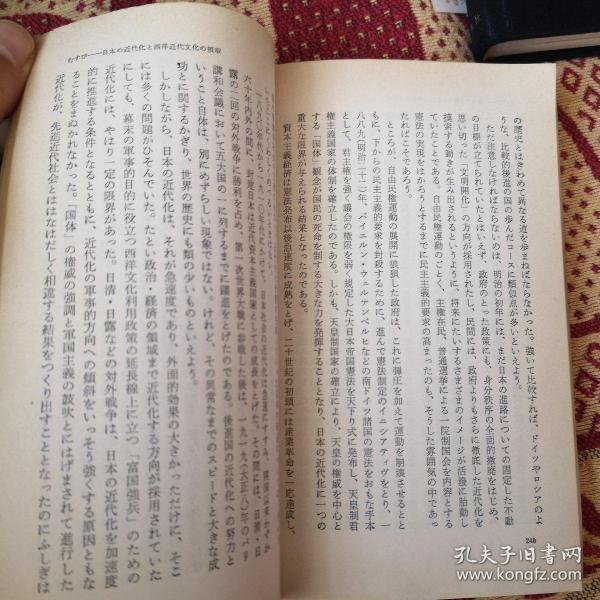 の歴史とはきわめて異なる道を歩まねばならなかった。強いて比較すれば、ドイツやロシアのよ
うな、比較的後進の国の歩んだコースに類似点が多いといえよう。
ただ注意しなければならないのは、明治の初年には、まだ日本の進路についての固定した不動
の目標が立てられていたとはいえず、政府のとった政策にも、身分秩序の全面的撤廃をはじめ、
思い切った「文明開化」の方向が採用されたし、民間には、政府よりもさらに徹底した近代化を
摸索する動きが生み出されるというように、将来にたいするさまざまのイメージが活潑に胎動し
ていたことである。自由民権運動のごとく、主権在民、普通選挙による一院制国会を内容とする
憲法の実現をはかろうとするまでに民主主義的要求の高まったのも、そうした雰囲気の中であっ
たればこそであろう。
ところが、自由民権運動の展開に狼狽した政府は、これに弾圧を加えて運動を崩壊させるとと
もに、下からの民主主義的要求を封殺するために、進んで憲法制定のイニシアティヴをとり、一
八八九(明治二十二)年、バイエルン・ウェルテンベルヒなどの南ドイツ諸国の憲法をおもな手本
として、君主権を強く議会の権限を弱く規定した大日本帝国憲法を天下り式に発布し、天皇制君
権主義国家の体制を確立したのである。しかも、天皇制国家の確立により、天皇の権威を中心と
する「国体」観念が国民の死命を制する大きな力を発揮することとなり、日本の近代化に一つの
重大な限界が与えられる結果となったのである。
資本主義経済は憲法発布以後急速度に成熟をとげ、二十世紀の初頭には産業革命を一応達成し、
248
むすび——日本の近代化と西洋近代文化の摂取
六十年内外の間に、封建日本は近代資本主義国家として成長をとげた。その間には、日清・日
露の二回の対外戦争に勝利を占め、第一次世界大戦に参戦した後は、一九一九(大正八)年のパリ
講和会議において五大国の一に列するまでに躍進をとげたのである。後進国の近代化への努力と
いうこと自体は、別にめずらしい現象ではない。けれど、その異常なまでのスピードと大きな成
功とに関するかぎり、世界の歴史にも類の少いものといえよう。
しかしながら、日本の近代化は、それが急速度であり、外面的効果の大きかっただけに、そこ
には多くの問題がひそんでいた。たとい政治・経済の領域まで近代化する方向が採用されていた
にしても、幕末の軍事的目的に役立つ西洋文化利用政策の延長線上に立つ「富国強兵」のための
近代化には、やはり一定の限界があった。日清・日露などの対外戦争は、日本の近代化を加速度
的に推進する条件となるとともに、近代化の軍事的方向への傾斜を、いっそう強くする原因ともな
ることをまぬかれなかった。「国体」の権威の強調と軍国主義の鼓吹とにはげまされて進行した
近代化が、先進近代社会とははなはだしく相違する結果をつくり出すこととなったのにふしぎは
孔夫子旧书网
www.kongfz.com